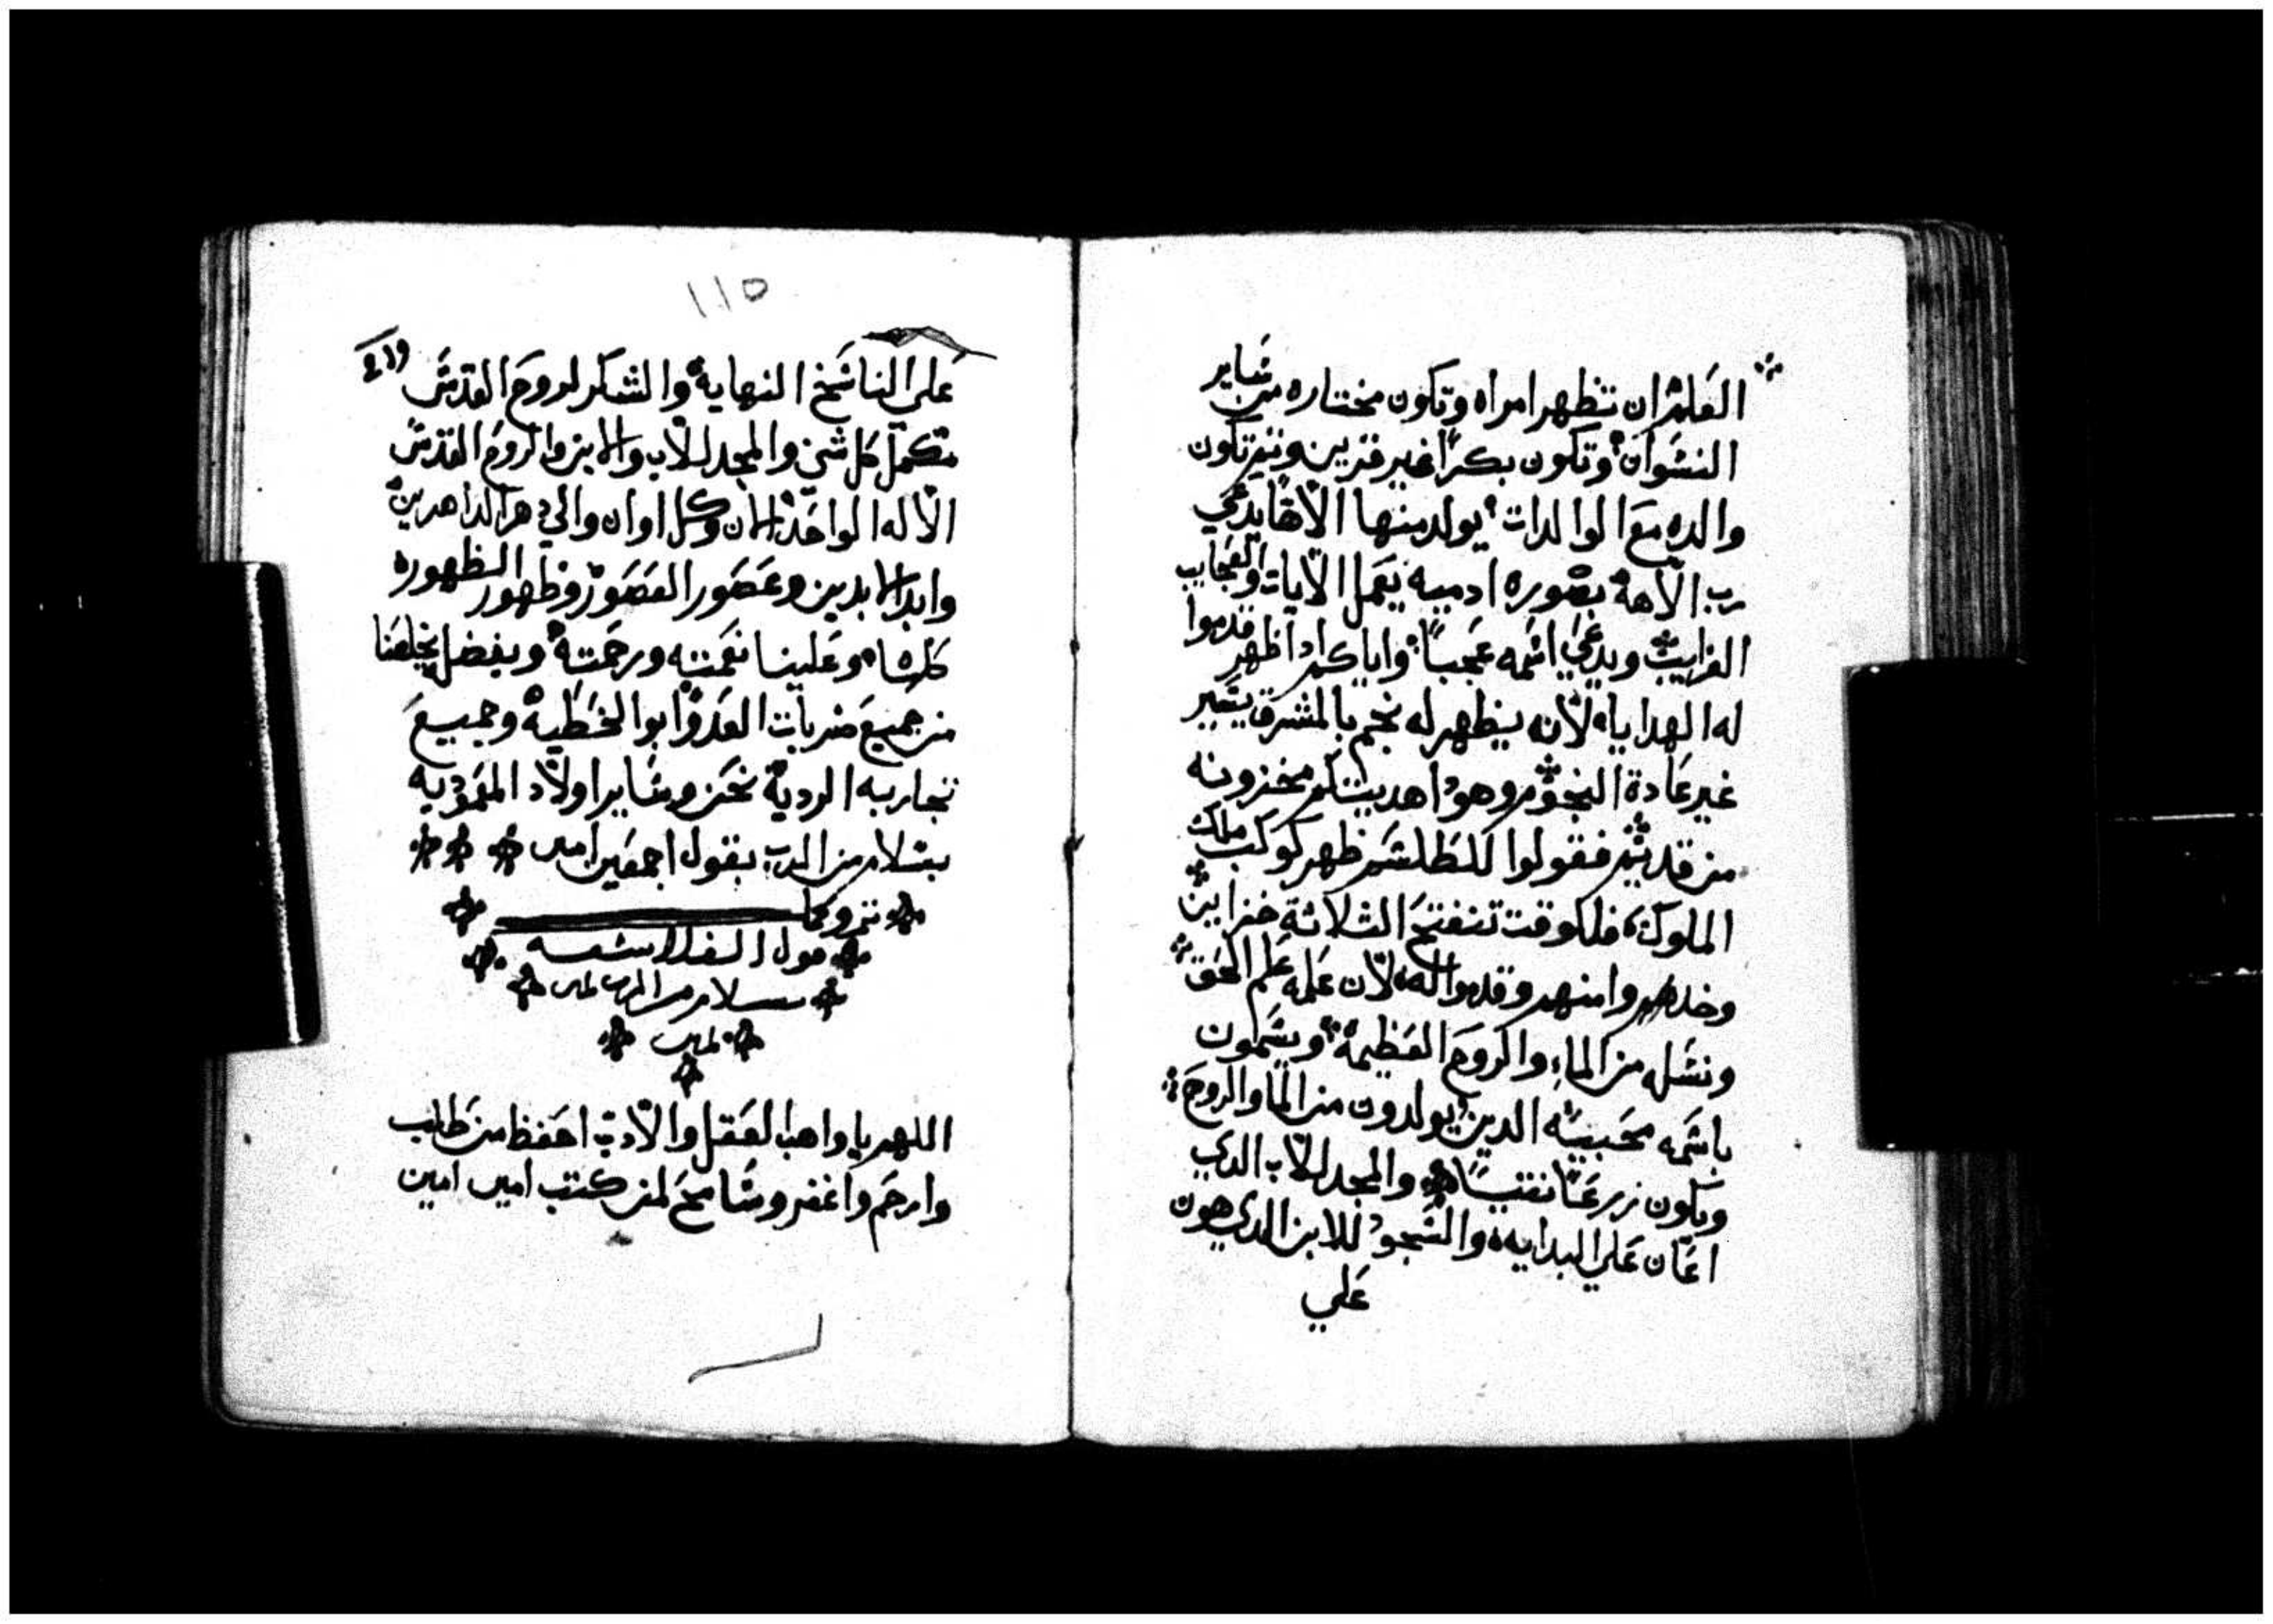 الفلش ان تظهر امراه وتكون مختاره من ساير
النسوان وتكون بكرًا غير قرين وتكون
والده مع الوالدات يولد منها الاهًا يدعي
رب الالهة بصوره ادميه يعمل الايات والعجايب
الغرايب ويدعي اسمه عجبًا واياكم اذا ظهر قدموا
له الهدايا لانه يظهر له نجم بالمشرق يسير
غير عادة النجوم وهودا هديتكم مخزونه
من قديم فقولوا ظهر كوكب ملك
الملوك فلكوقت تنفتح الثلاثة خزاين
وخدوا منهم وقدموا له لان علمه علم الحق
ونسله من الماء والروح العظيمة ويسمون
باسمه محبينه الدين يولدون من الما والروح
ويكون زرعًا نقيًا والمجد للاب الدي
اعان علي البدايه والسجود للابن الدي هون
علي
١١٥
علي الناسخ النهاية والشكر لروح القدس
مكمل كل شي والمجد للاب والابن والروح القدس
الاله الواحد الان وكل اوان والي دهر الداهرين
وابد الابدين وعصور العصور وظهور الظهوره
كلها وعلينا نعمته ورحمتة وبفضله يخلصنا
من جميع ضربات العدو ابو الخطية وجميع
تجاربه الردية نحن وساير اولاد المعمودية
بسلام من الرب بقول اجمعين امين
سلام من الرب امين
امين
اللهم يا واهب العقل والادب احفظ من طلب
وارحم واغفر وسامح لمن كتب امين امين